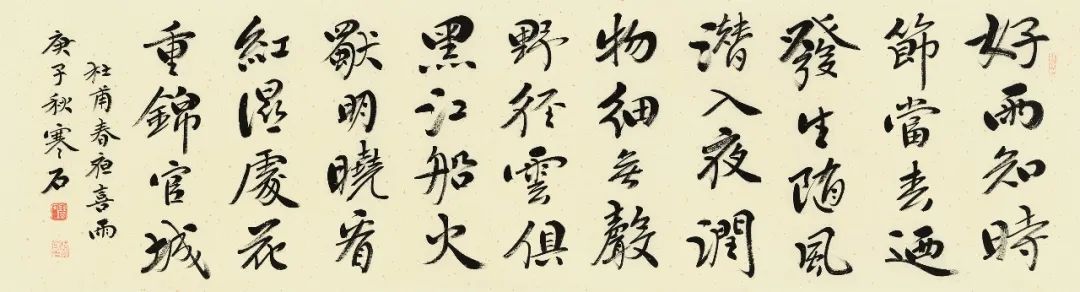 好雨知時
節當春迺
發生随風
潜入夜潤
物細無聲
野徑雲俱
黑江船火
獨明曉看
紅濕處花
重錦官城
杜甫春夜喜雨
庚子秋寒石